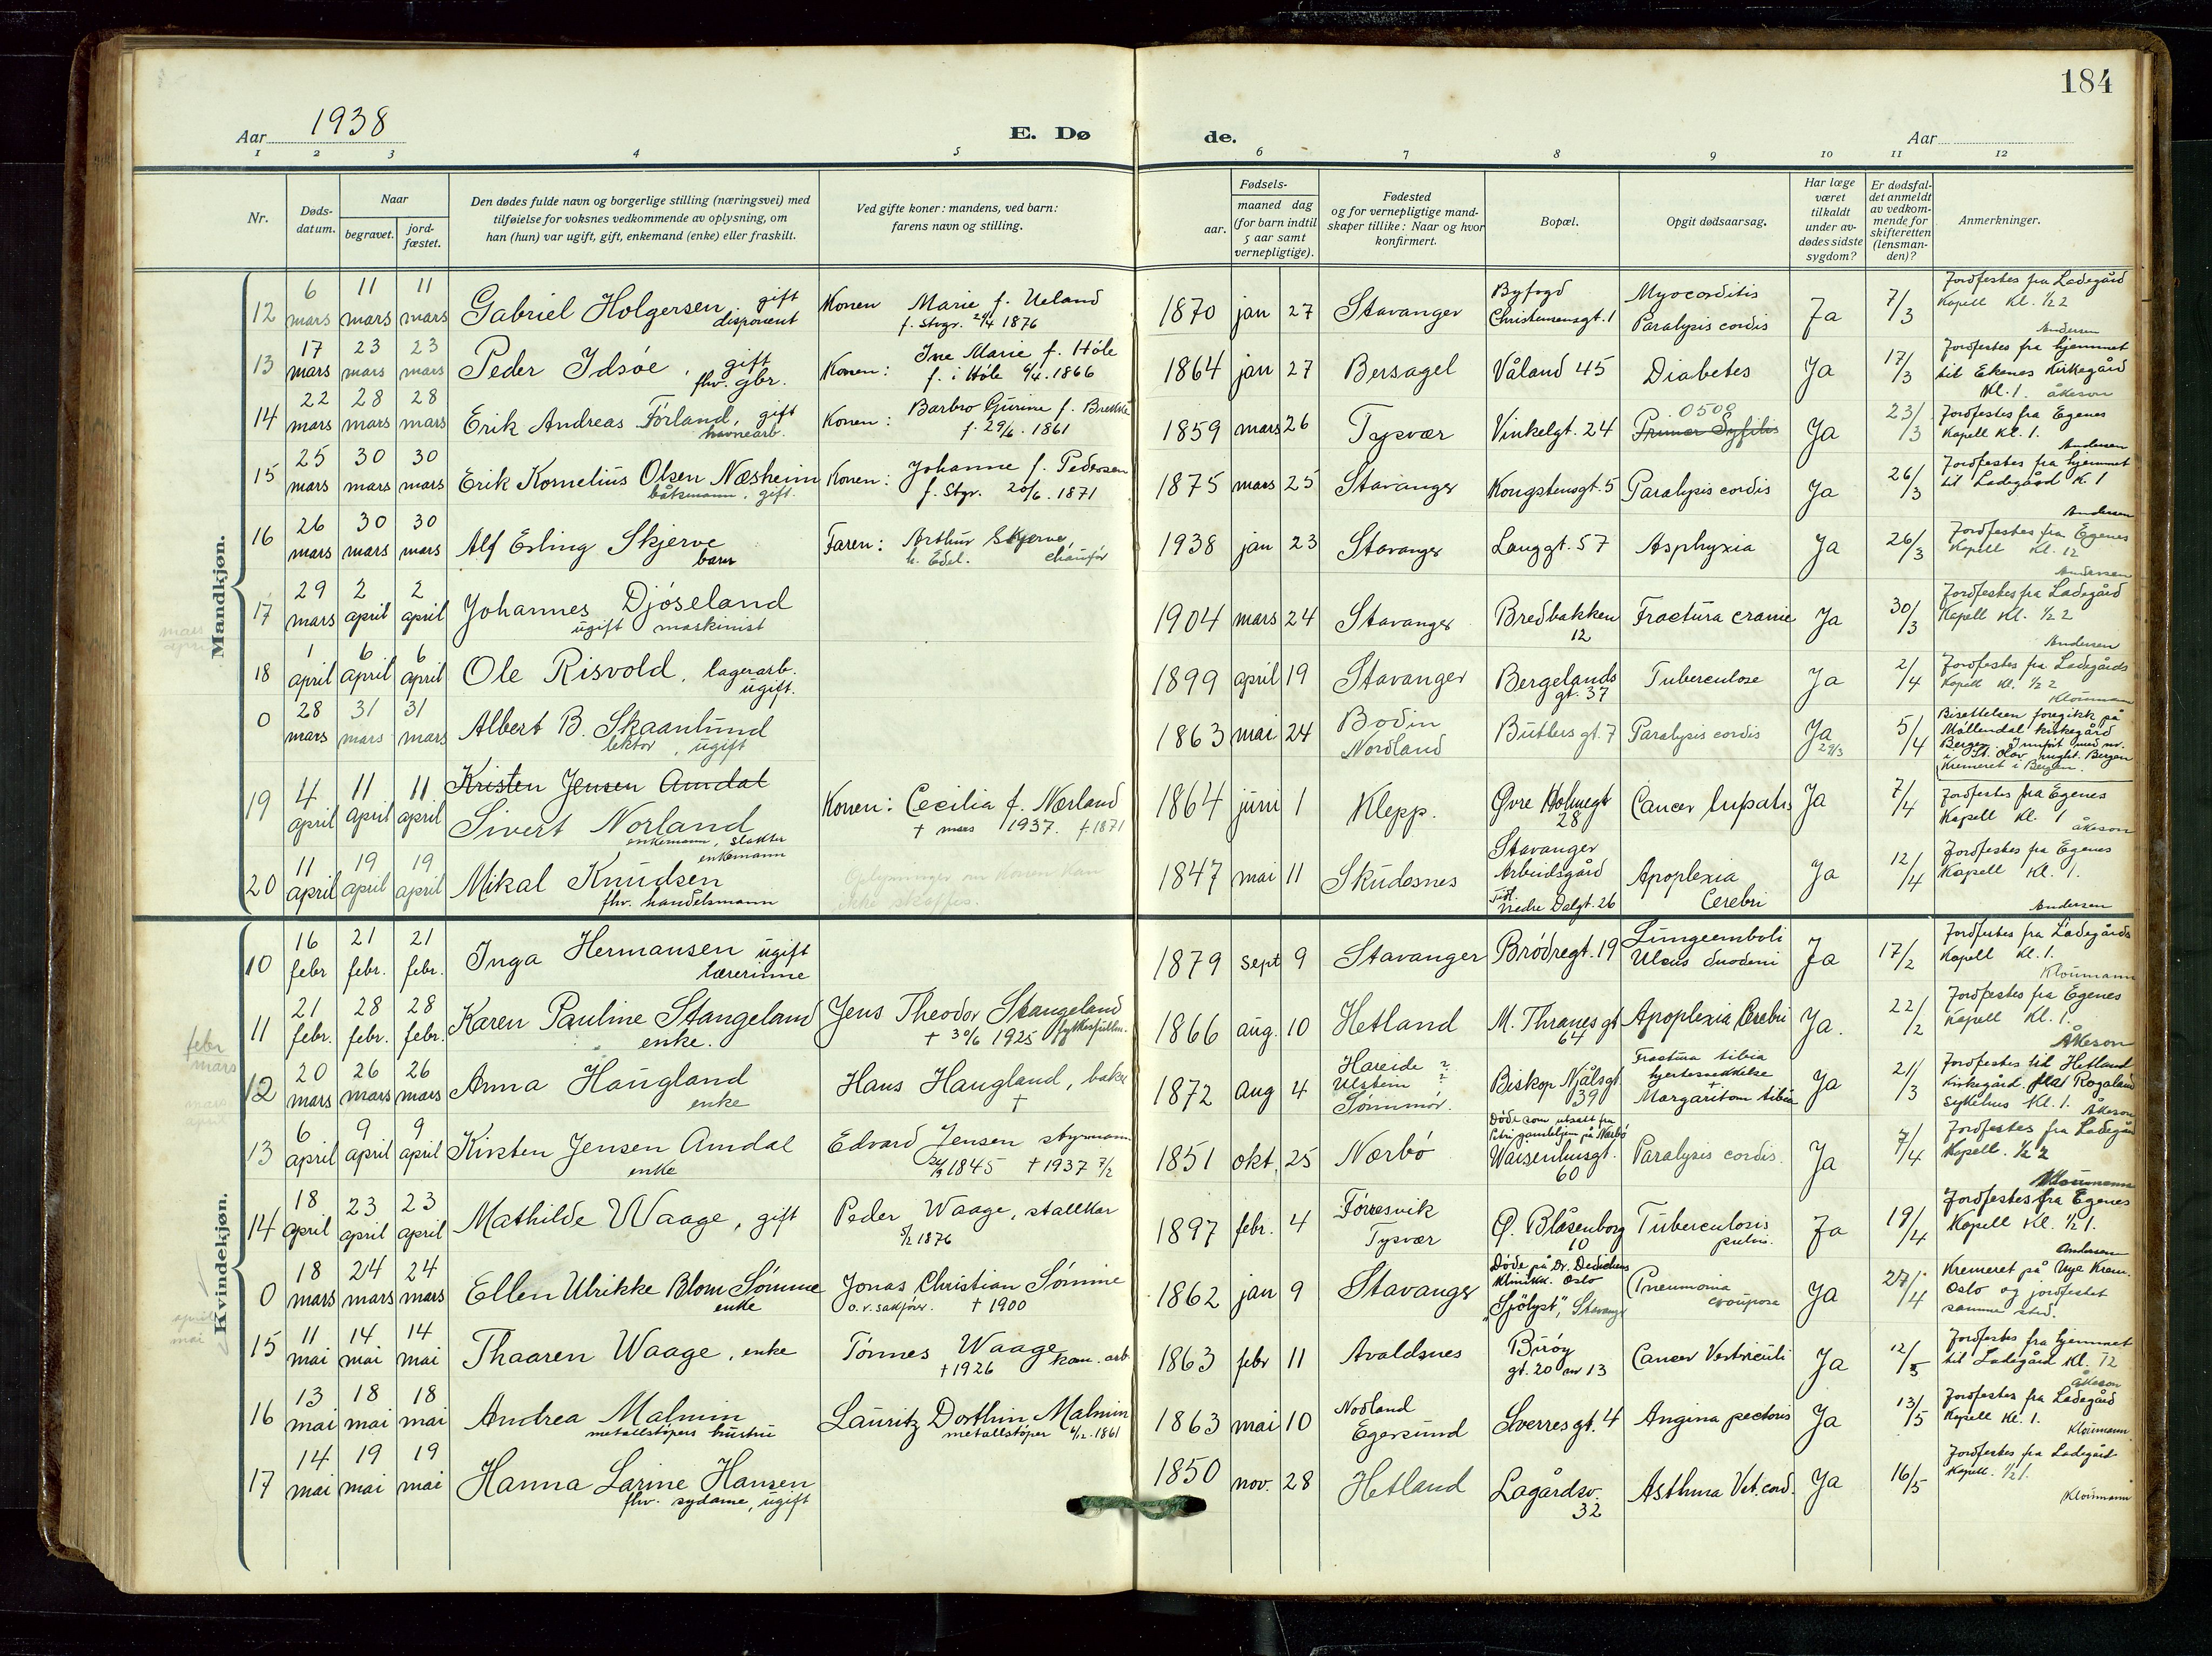 184
Aar 1938
E. Dø de.
Aar
1 2 3 4 5 6 7 8 9 10 11 12
Nr.
Døds-
datum.
Naar
begravet.
jord-
fæstet.
Den dødes fulde navn og borgerlige stilling (næringsvei) med
tilføielse for voksnes vedkommende av oplysning, om
han (hun) var ugift, gift, enkemand (enke) eller fraskilt.
Ved gifte koner: mandens, ved barn:
farens navn og stilling.
Fødsels-
aar.
maaned dag
(for barn indtil
5 aar samt
vernepligtige).
Fødested
og for vernepligtige mand-
skaper tillike: Naar og hvor
konfirmert.
Bopæl.
Opgit dødsaarsag.
Har læge
været
tilkaldt
under av-
dødes sidste
sygdom?
Er dødsfal-
det anmeldt
av vedkom-
mende for
skifteretten
(lensman-
den)?
Anmerkninger.
Mandkjøn.
12 6 mars 11 mars 11 mars Gabriel Holgersen, gift disponent Konen Marie f. Ueland f. Stvgr. 1876 1870 jan 27 Stavanger Byfogd Christensensgt. 1 Myocorditis Paralysis cordis Ja 7/3 Jordfestes fra Ladegård Kapell Kl. 1/2 2 Andersen
13 17 mars 23 mars 23 mars Peder Idsøe, gift fhv. gbr. Konen: Ine Marie f. Høle f. i Høle 6/4.1866 1864 jan 27 Bersagel Våland 45 Diabetes Ja 17/3 Jordfestes fra hjemmet til Ekenes Kirkegård Kl. 1. Åkeson
14 22 mars 28 mars 28 mars Erik Andreas Førland, gift havnearb. Konen: Barbro Gurine f. f. 29/6.1861 1859 mars 26 Tysvær Vinkelgt. 24 0500 Primær Syfilis Ja 23/3 Jordfestes fra Egenes Kapell Kl. 1. Andersen
15 25 mars 30 mars 30 mars Erik Kornelius Olsen Næsheim båtsmann, gift. Konen: Johanne f. Pedersen f. Stgr. 20/6. 1871 1875 mars 25 Stavanger Kongstensgt. 5 Paralysis cordis Ja 26/3 Jordfestes fra hjemmet til Ladegård K. 1 Andersen
16 26 mars 30 mars 30 mars Alf Erling Skjerve barn Faren: Arthur Skjerve, h. Edel. chaufør 1938 jan 23 Stavanger Langgt. 57 Asphyxia Ja 26/3 Jordfestes fra Egenes Kapell Kl. 12 Andersen
17 29 mars 2 april 2 april Johannes Djøseland ugift maskinist 1904 mars 24 Stavanger Bredbakken 12 Fractura cranie Ja 30/3 Jordfestes fra Ladegård Kapell Kl. 1/2 2 Andersen
18 1 april 6 april 6 april Ole Risvold, lagerarb. ugift. 1899 april 19 Stavanger Bergelands gt. 37 Tuberculose Ja 2/4 Jordfestes fra Ladegårds Kapell Kl. 1/2 2 Kloumann
0 28 mars 31 mars 31 mars Albert B. Skaanlund lektor, ugift 1863 mai 24 Bodin Nordland Butlers gt. 7 Paralysis cordis Ja 29/3 5/4 Bisettelsen foregikk på Møllendal kirkegård Bergen. Bergen Kremeret i Bergen.
19 4 april 11 april 11 april Kristen Jensen Amdal
Sivert Norland enkemann, slakter Konen: Cecilia f. Nærland † mars 1937. f. 1871 1864 juni 1 Klepp. Øvre Holmegt 28 Cancer hepatis Ja 7/4 Jordfestes fra Egenes Kapell Kl. 1 Åkeson
20 11 april 19 april 19 april Mikal Knudsen enkemann fhv. handelsmann Oplysninger om konen kan ikke skaffes. 1847 mai 11 Skudesnes Stavanger Arbeidsgård Tidl. Nedre Dalgt. 26 Apoplexia Cerebri Ja 12/4 Jordfestes fra Egenes Kapell Kl. 1. Andersen
Kvindekjøn.
10 16 febr 21 febr. 21 febr. Inga Hermansen ugift lærerinne 1879 sept 9 Stavanger Brødregt. 19 Lungeemboli Ulcus duodeni Ja 17/2 Jordfestes fra Ladegårds Kapell Kl. 1. Kloumann
11 21 febr. 28 febr. 28 febr. Karen Pauline Stangeland enke. Jens Theodor Stangeland † 30/6 1925 1866 aug. 10 Hetland M. Thranes gt 64 Apoplexia Cerebri Ja. 22/2 Jordfestes fra Egenes Kapell Kl. 1. Åkeson
12 20 mars 26 mars 26 mars Anna Haugland enke Hans Haugland, baker † 1872 aug 4 Hareide ? Ulstein ? Sønnmør. Biskop Njålsgt 39 Fractura tibia hjertesvekkelse + Margaritom tibia Ja 21/3 Jordfestes til Hetland Kirkegård fra Rogaland sykehus Kl. 1. Åkeson
13 6 april 9 april 9 april Kirsten Jensen Amdal enke Edvard Jensen styrmann 1845 † 1937 7/2 1851 okt. 25 Nærbø Døde som utsatt fra gamlehjem på Nærbø Waisenhusgt. 60 Paralysis cordis. Ja 7/4 Jordfestes fra Ladegård Kapell. 1/2 2 Kloumann
14 18 april 23 april 23 april Mathilde Waage, gift Peder Waage, stallkar 5/2 1876 1897 febr. 4 Førresvik Tysvær Ø. Blåsenborg 10 Tuberculosis pulm. Ja 19/4 Jordfestes fra Egenes Kapell Kl. 1/2 1. Andersen
0 18 mars 24 mars 24 mars Ellen Ulrikke Blom Sømme enke Jonas Christian Sømme o.r.sakfører. † 1900 1862 jan 9 Stavanger Døde på Dr. Dedichens Klinikk. Oslo "Sjølyst", Stavanger Pneumonia crouposa Ja 27/4 Kremeret på Nye Krem. Oslo og jordfestet samme sted.
15 11 mai 14 mai 14 mai Thaaren Waage, enke Tønnes Waage † 1926 kom. arb 1863 febr 11 Avaldsnes Buøy gt. 20 nr 13 Cancer Ventriculi Ja 12/5 Jordfestes fra hjemmet til Ladegård Kl. 12 Åkeson
16 13 mai 18 mai 18 mai Andrea Malmin metallstøpers hustru Lauritz Dorthin Malmin metallstøper 6/12.1861 1863 mai 10 Nodland Egersund Sverresgt. 4 Angina pectoris Ja 13/5 Jordfestes fra Ladegård Kapell Kl. 1. Kloumann
17 14 mai 19 mai 19 mai Hanna Larine Hansen fhv. sydame, ugift 1850 nov. 28 Hetland Lagårdsv. 32 Asthma Vit. cord. Ja 16/5 Jordfestes fra Ladegård Kapell. 1/2 1. Kloumann